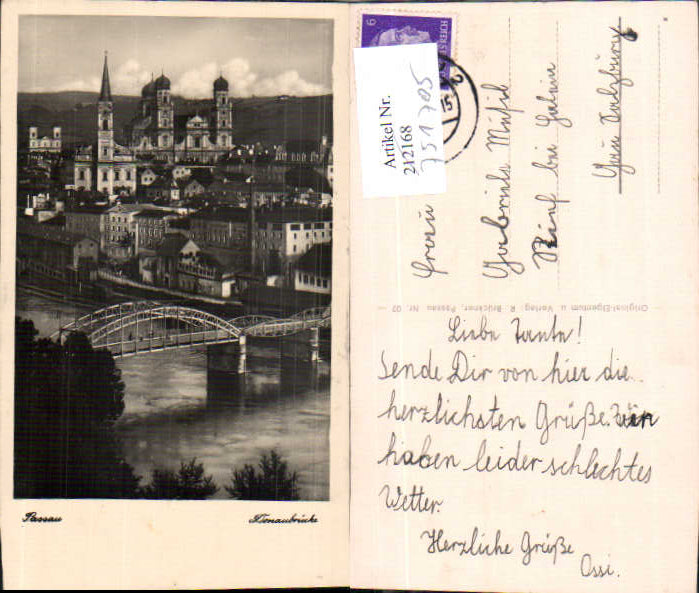 Passau
Donaubrücke
6
REICH
15
Artikel Nr.
212168
751705
Frau
Gabriele
bei
Gau Salzburg
Original-Eigentum u. Verlag: R. Brückner, Passau Nr. 07
Liebe Tante!
Sende Dir von hier die
herzlichsten Grüße. Wir
haben leider schlechtes
Wetter.
Herzliche Grüße
Ossi.